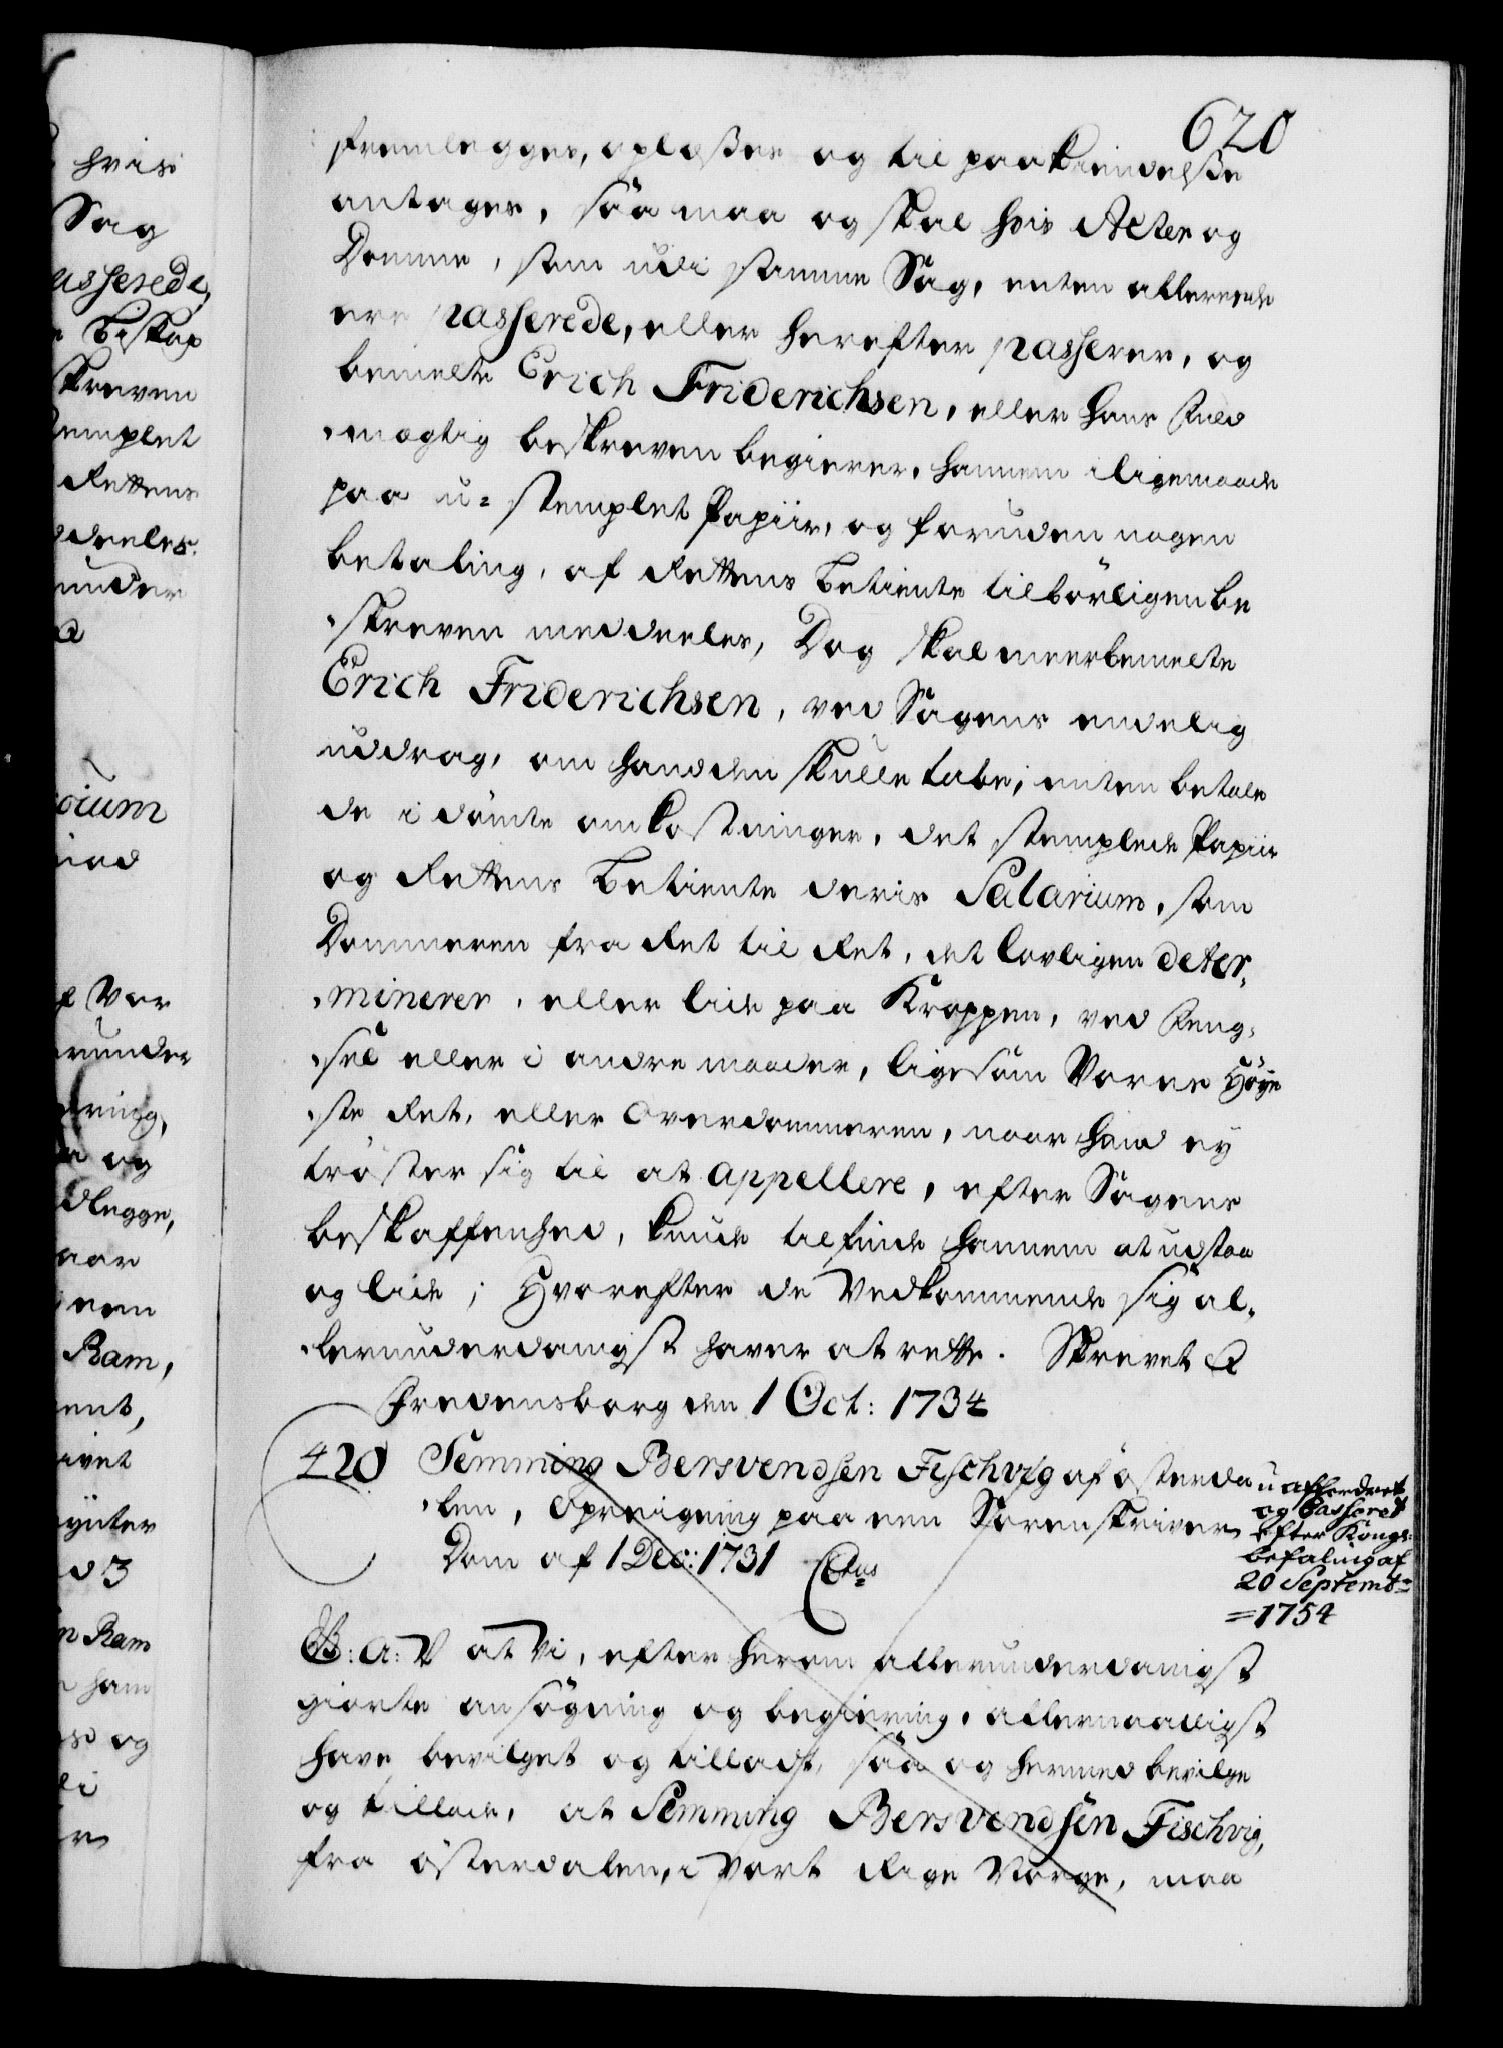 620
fremlegges, oplæsses og til paakiendelsse
antages, saa maa og skal hvis Acter og
Domme, som udi samme Sag, enten allereede
ere passerede, eller herefter passerer, og
bemelte Erich Friderichsen, eller hans Fuld
mægtig beskreven begierer, hannem i ligemaade
paa u-stemplet Papiir, og foruden nogen
betaling, af Rettens Betiente tilbörligen be
skreven meddeeles, Dog skal meerbemelte
Erich Friderichsen, ved Sagens endelig
uddrag, om hand den skulle tabe, enten betale
de i dömte omkostninger, det stemplede Papiir
og Rettens Betiente deris Salarium, som
Dommeren fra Ret til Ret, det lovligen deter,
minerer, eller lide paa Kroppen, ved Feng,
sel eller i andre maader, ligesom Vores Höje
ste Ret, eller Overdommeren, naar hand ey
tröster sig til at appellere, efter Sagens
beskaffenhed, kunde tilfinde hannem at udstaa
og lide; Hvorefter de Vedkommende sig al,
lerunderdanigst haver at rette. Skrevet &
Fredensborg den 1 Oct: 1734
420 Semming Bersvendsen Fischvig af österda
len, Opreigning paa een Sorenskrivers
Dom af 1 Dec: 1731 Ctus
u-affordret
og Casseret
efter Kongl:
befaling af
20 Septembr:
=1754
G: A: V at Vi, efter herom allerunderdanigst
giorte ansögning og begiering, allernaadigst
have bevilget og tilladt, saa og hermed bevilge
og tillade, at Semming Bersvendsen Fischvig,
fra österdalen, i Vort Rige Norge, maa